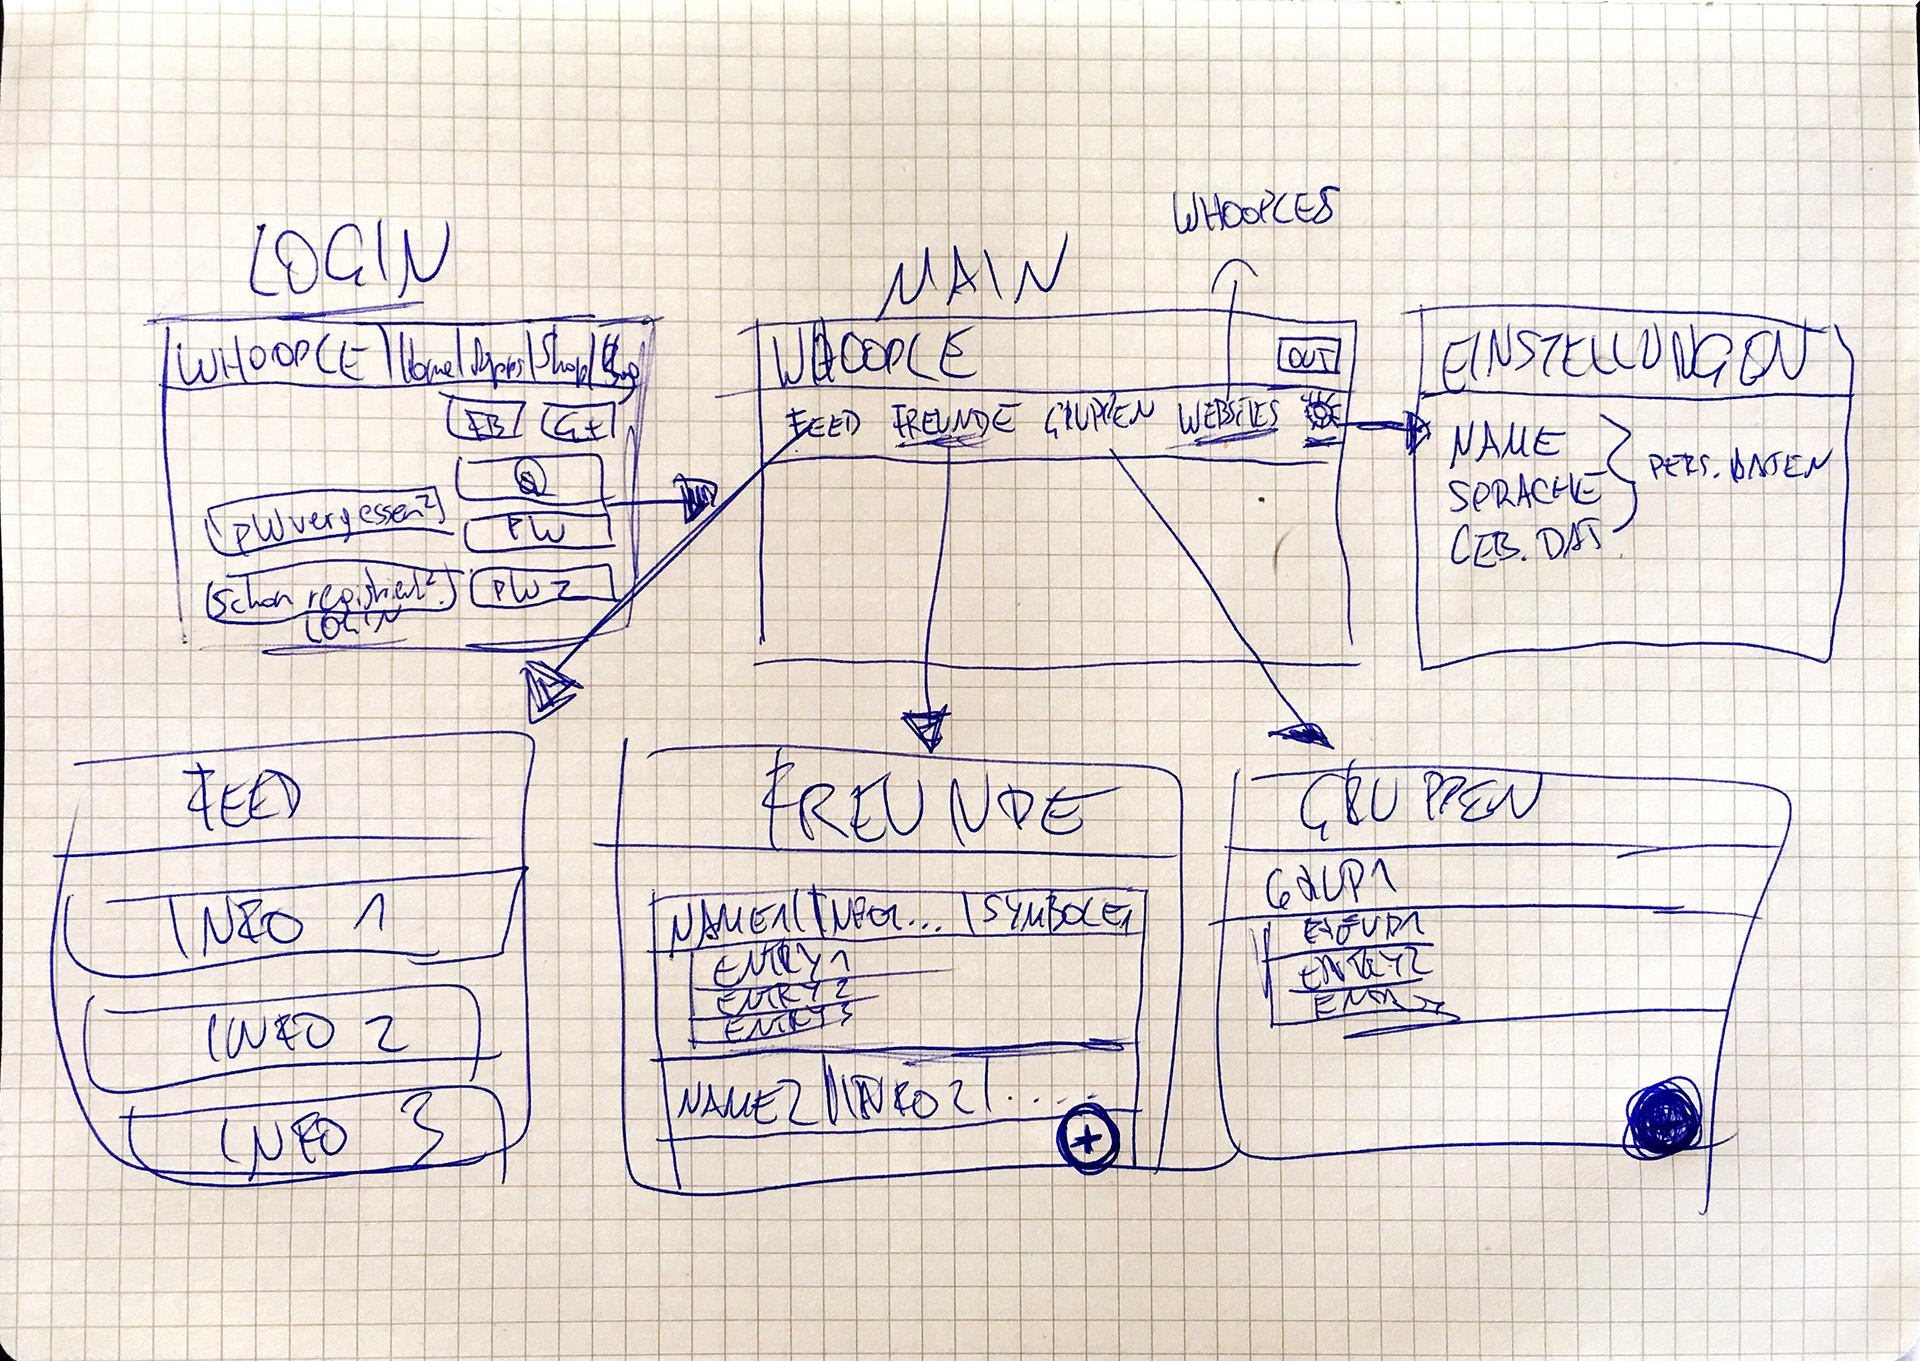 WHOOPLES
LOGIN
MAIN
WHOOPLE Home Apps Shop
FB G+
@
PW vergessen?
PW
schon registriert?
LOGIN
PW 2
WHOOPLE OUT
FEED FREUNDE GRUPPEN WEBSITES
EINSTELLUNGEN
NAME
SPRACHE
GEB. DAT.
PERS. DATEN
FEED
INFO 1
INFO 2
INFO 3
FREUNDE
NAME1 INFO1... SYMBOLE1
ENTRY 1
ENTRY 2
ENTRY 3
NAME2 INFO 2 .....
+
GRUPPEN
GRUP1
ENTRY2